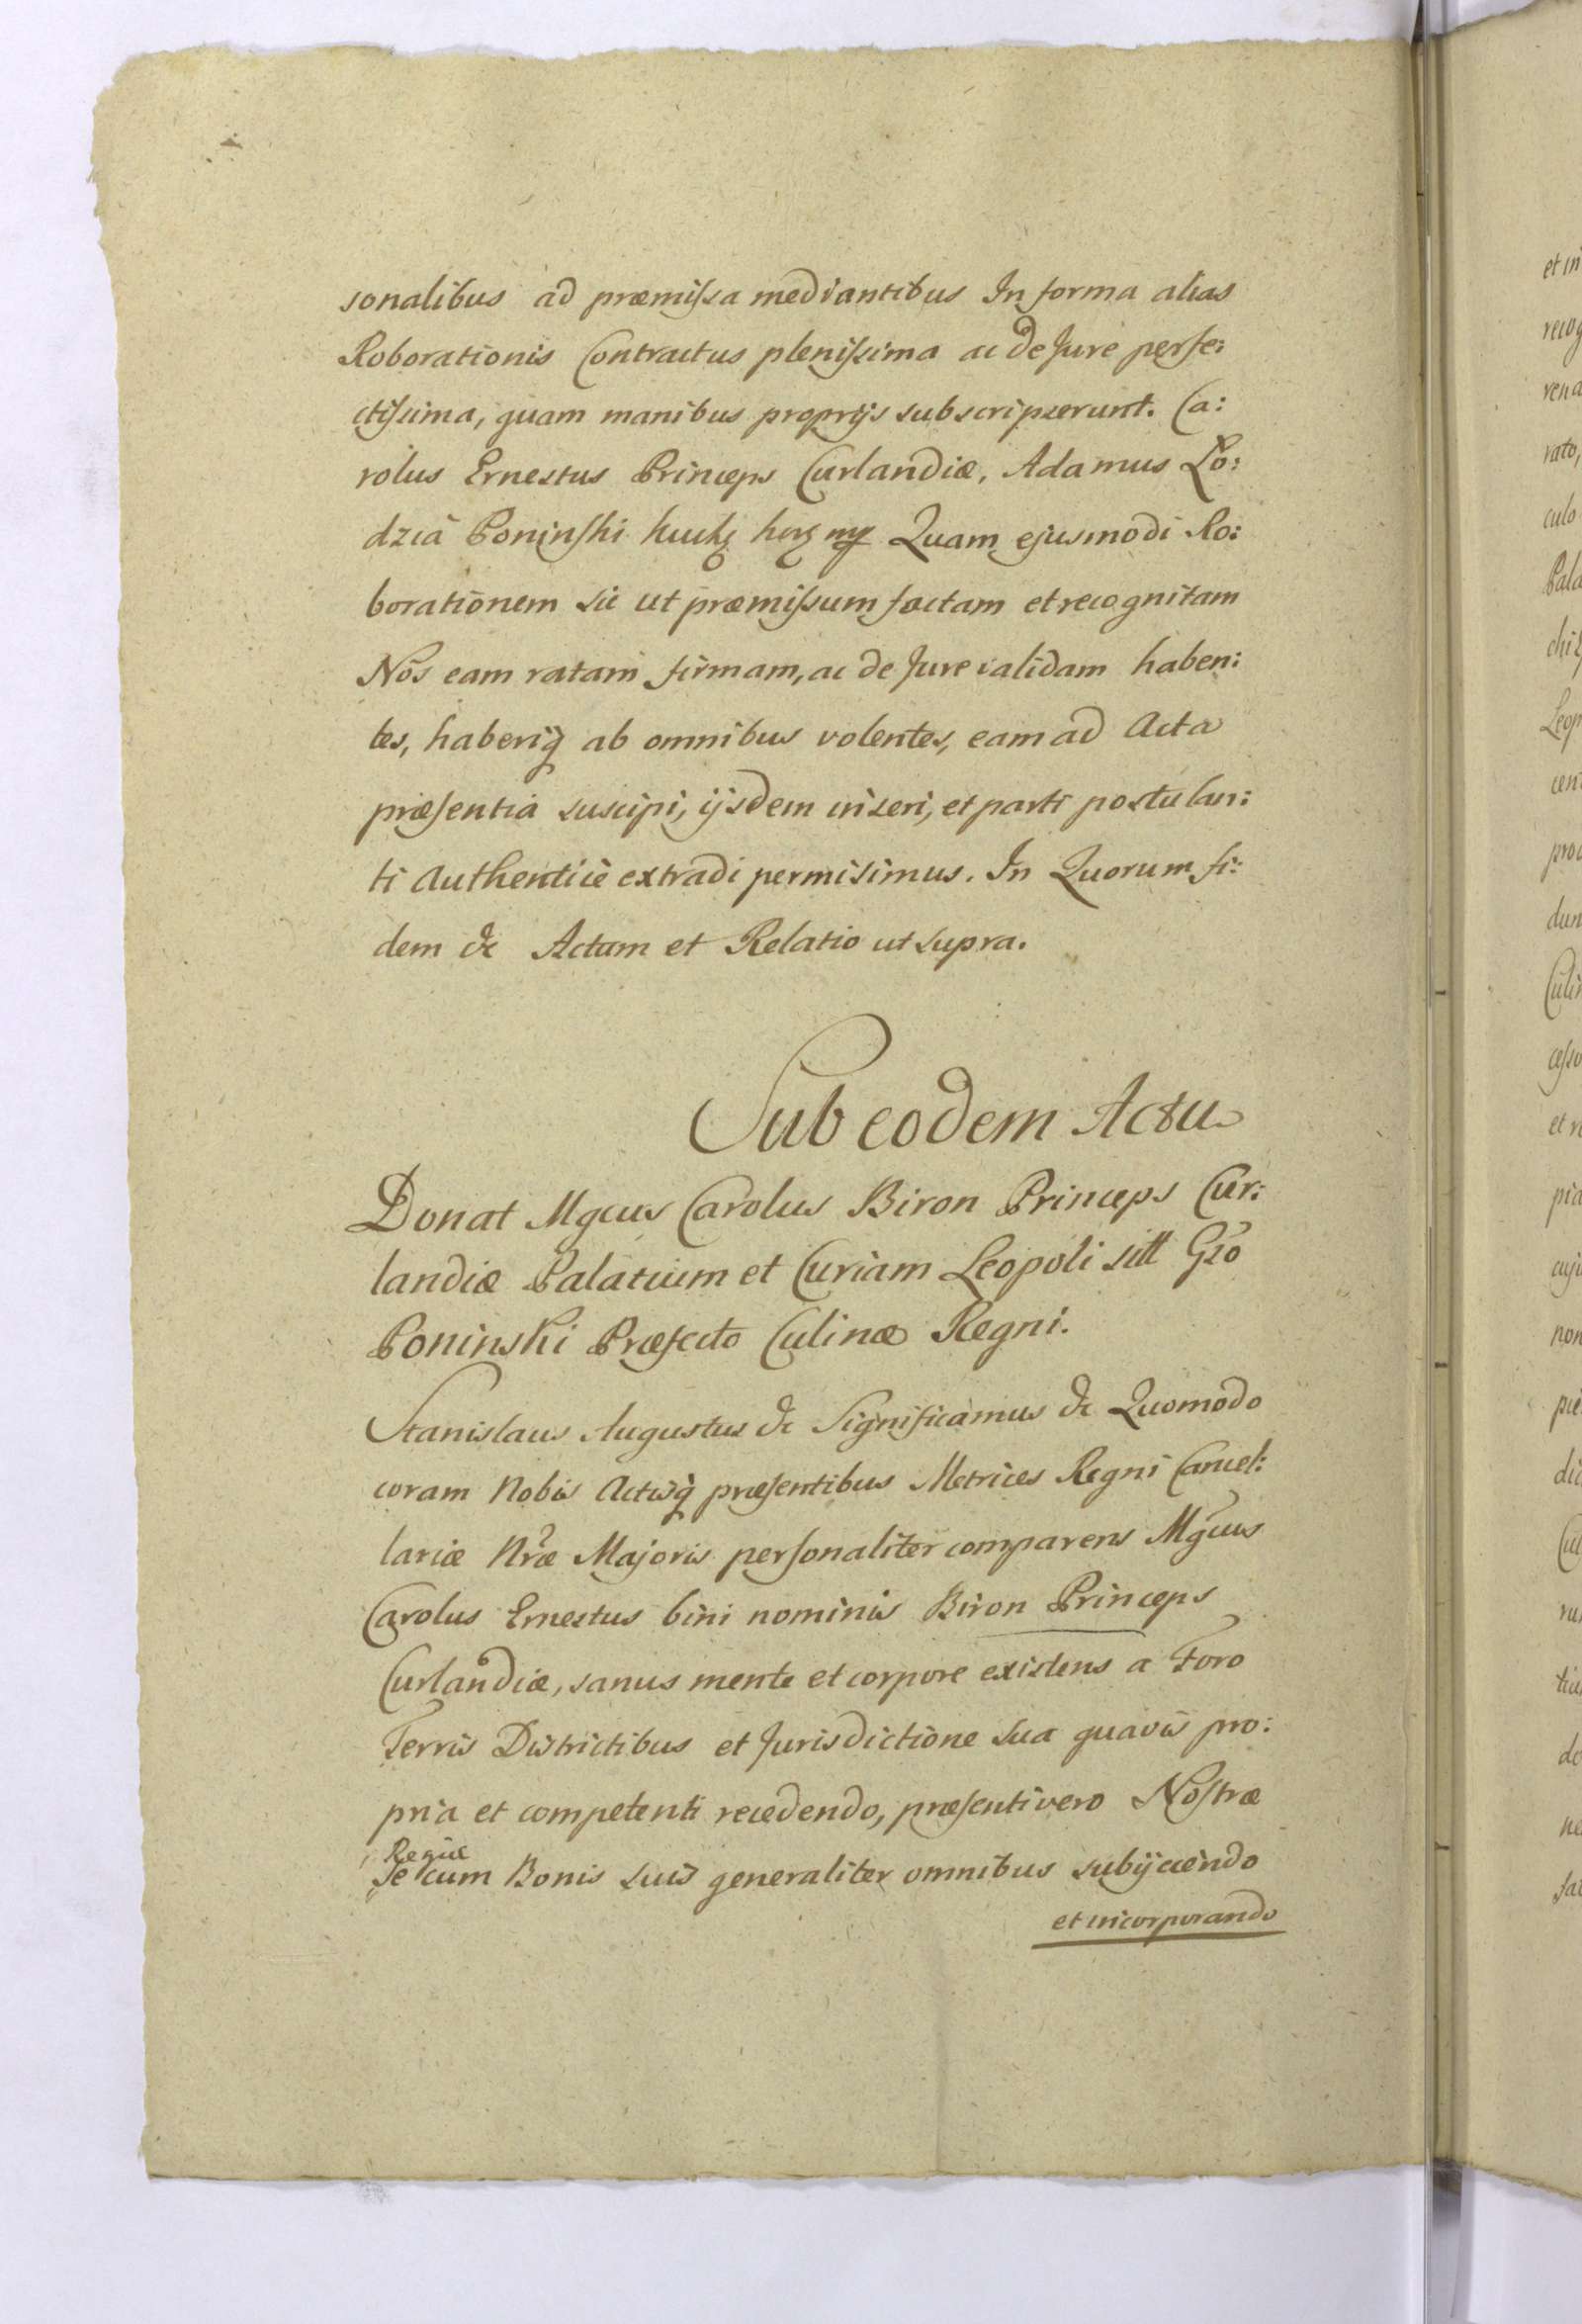 sonalibus ad præmissa mediantibus In forma alias
Roborationis Contractus plenissima ac de Jure perfe:
ctissima, quam manibus proprijs subscripserunt. Ca:
rolus Ernestus Princeps Curlandiæ, Adamus Lo:
dzia Poninski Quam ejusmodi Ro:
borationem sic ut præmissum factam et recognitam
Nos eam ratam firmam, ac de Jure validam haben:
tes, haberiq ab omnibus volentes, eam ad Acta
præsentia suscipi, ijsdem inseri, et parti postulan:
ti Authentice extradi permisimus. In Quorum fi:
dem &c Actum et Relatio ut supra.
Sub eodem Actu
Donat Mgcus Carolus Biron Princeps Cur:
landiæ Palatium et Curiam Leopoli sitt Gso
Poninski Præfecto Culinæ Regni.
Stanislaus Augustus &c Significamus &c Quomodo
coram Nobis Actisq præsentibus Metrices Regni Cancel:
lariæ Nræ Majoris personaliter comparens Mgcus
Carolus Ernestus bini nominis Biron Princeps
Curlandiæ, sanus mente et corpore existens a Foro
Terris Districtibus et Jurisdictione sua quavis pro:
pria et competenti recedendo, præsenti vero Nostræ
Regiæ
Se cum Bonis suis generaliter omnibus subijciendo
et incorporando
et in
vena
rato,
culo
Pala
Leop
dun
et r
non